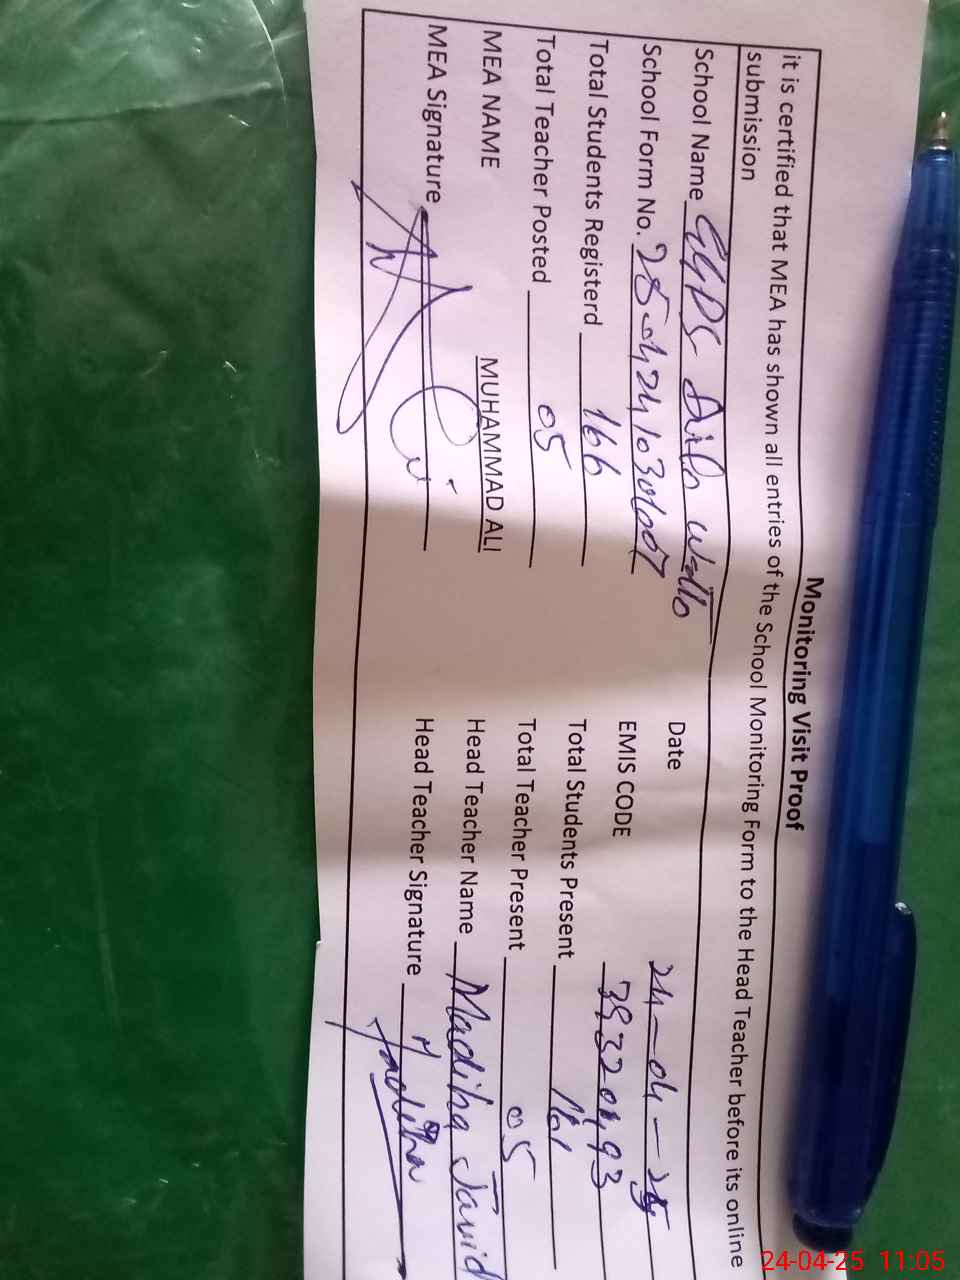 Monitoring Visit Proof
it is certified that MEA has shown all entries of the School Monitoring Form to the Head Teacher before its online
submission
School Name Date 24-04-25
School Form No. EMIS CODE
Total Students Registerd 166 Total Students Present 161
Total Teacher Posted 05 Total Teacher Present 05
MEA NAME MUHAMMAD ALI Head Teacher Name Madiha Javid
MEA Signature Head Teacher Signature Madiha
24-04-25 11:05